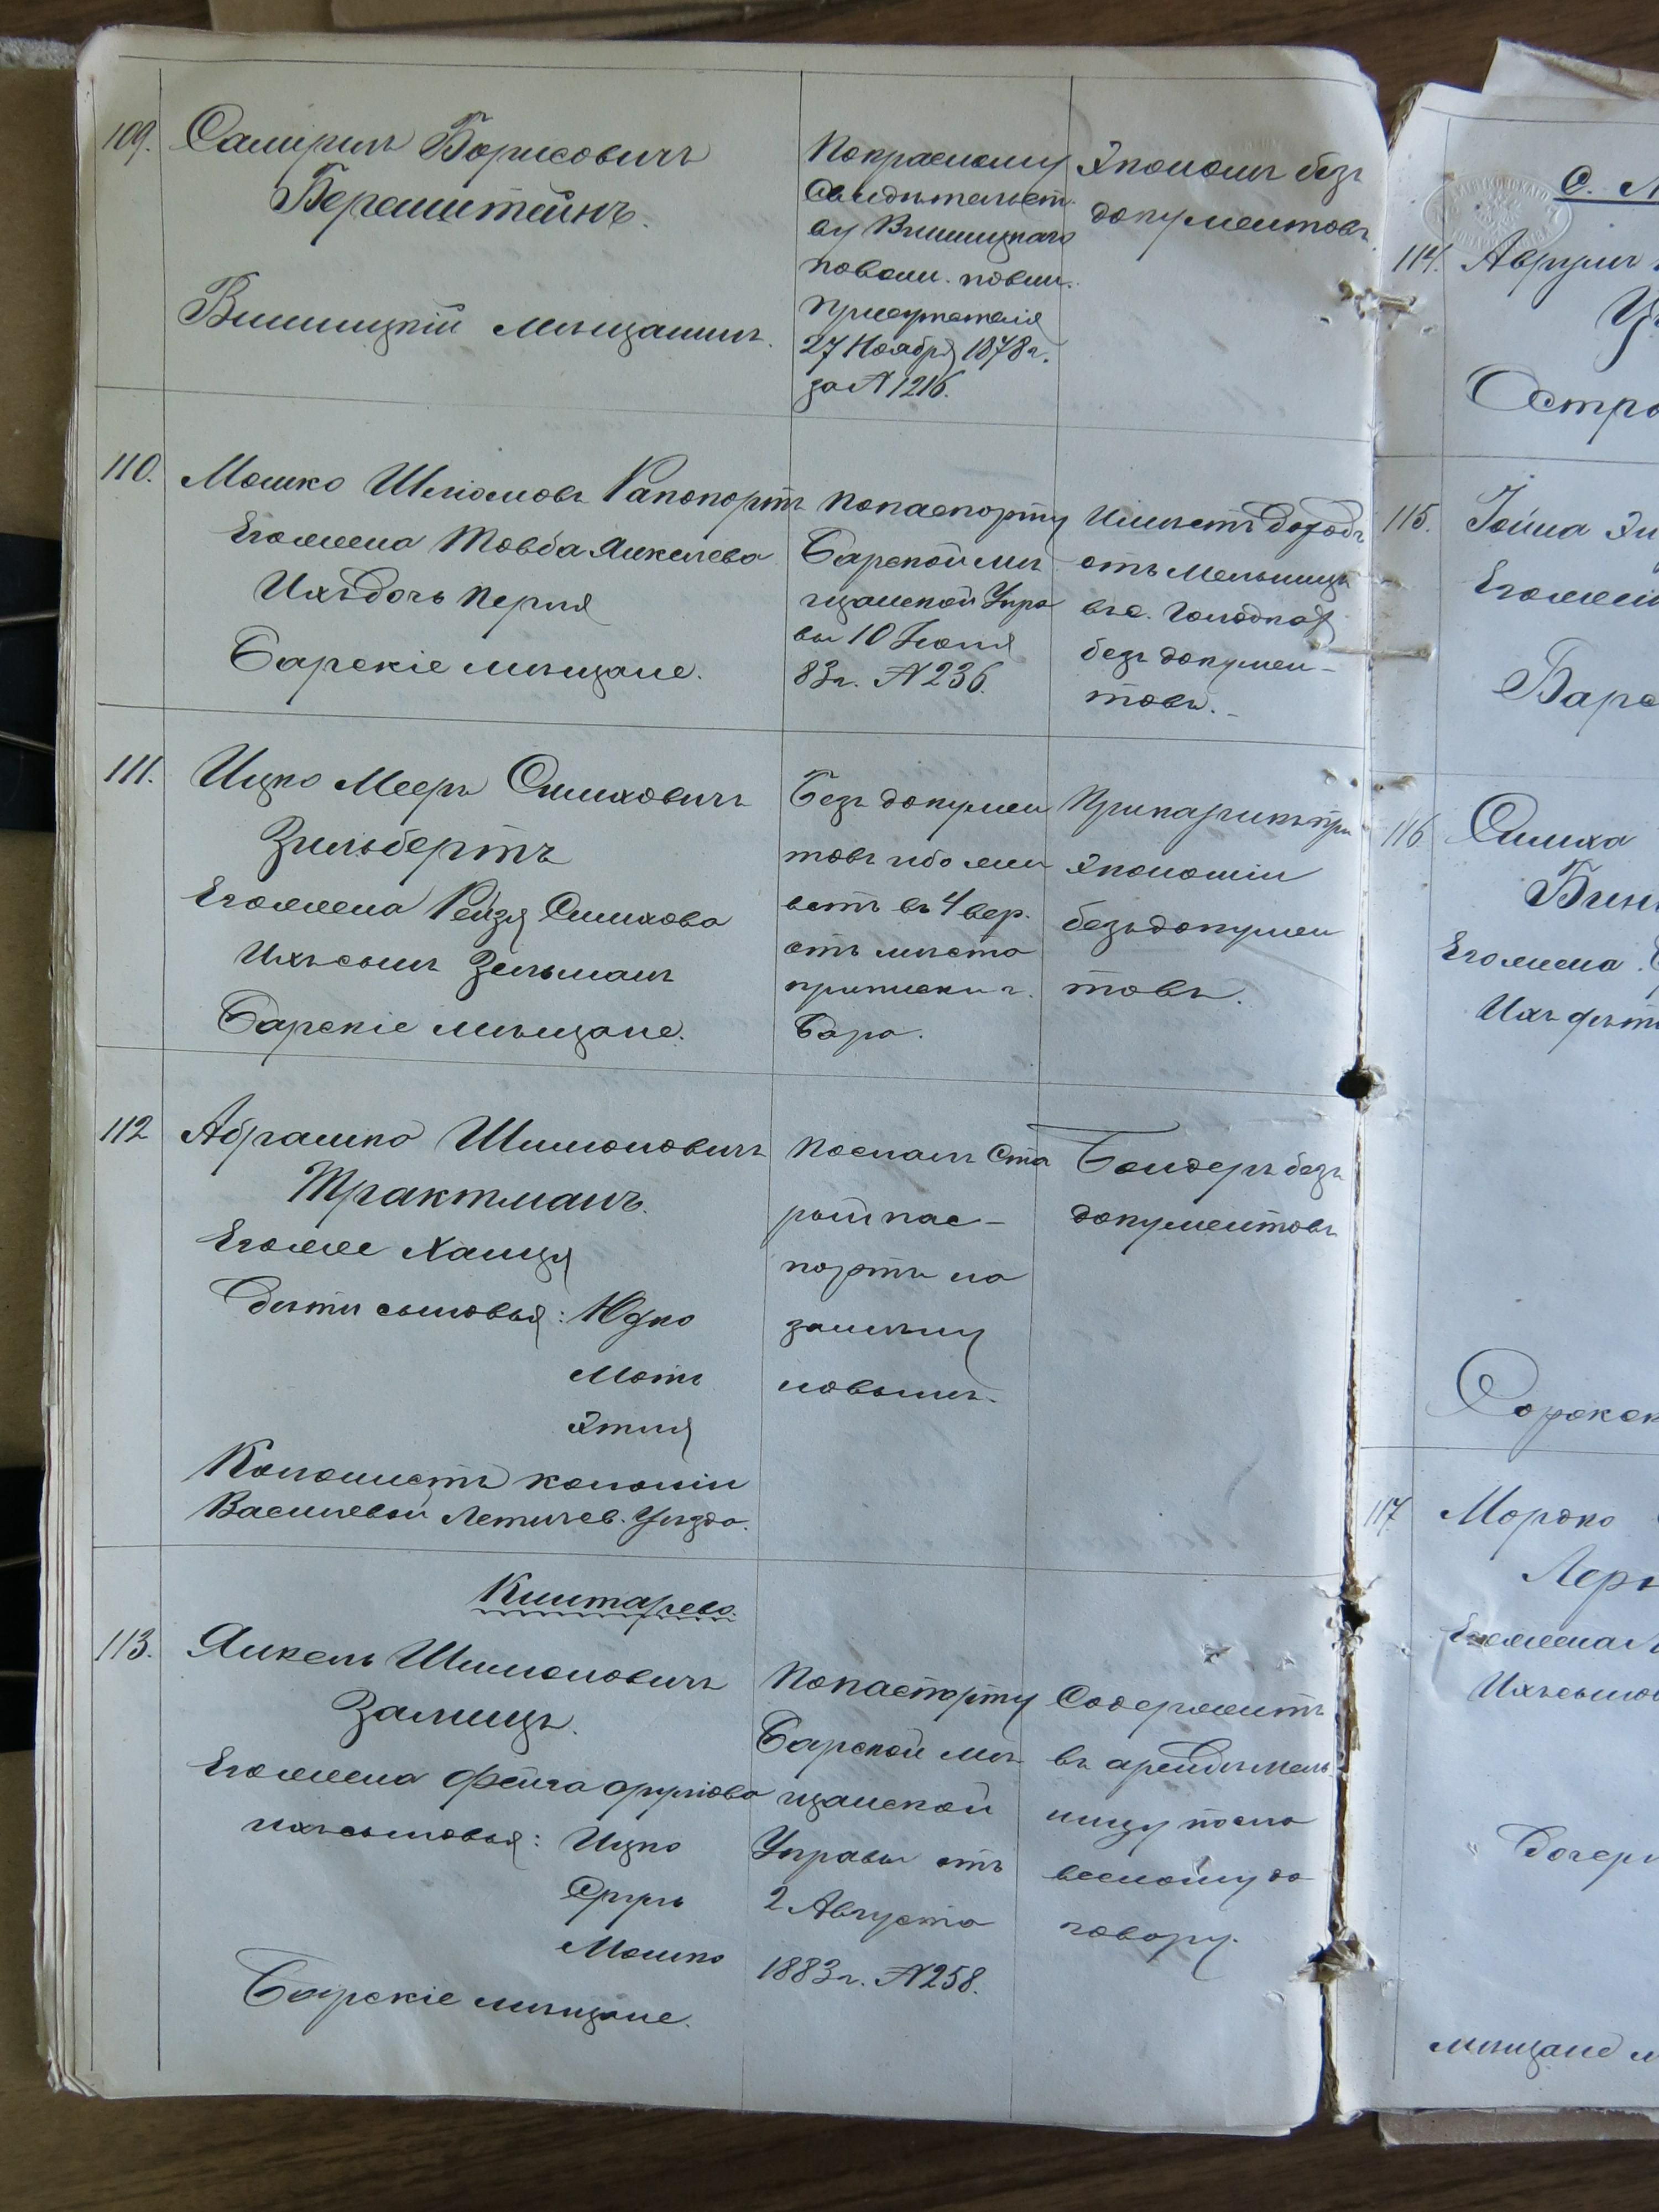 109.
Самуилъ Борисовичъ
Бернштейнъ.
Винницкій мѣщанинъ.
По красному
свидѣтельст
ву Винницкаго
по воин. повин.
присутствія
27 Ноября 1878 г.
за № 1216.
Экономъ безъ
документовъ.
110.
Мошко Шліомовъ Рапопортъ
Его жена Товба Янкелева
Ихъ дочь Перля
Барскіе мѣщане.
По паспорту
Барской мѣ
щанской Упра
вы 10 Іюня
83 г. № 236.
отъ мельницы
въ с.
безъ докумен-
товъ.
111.
Ицко Мееръ Симховичъ
Зильбертъ
Его жена Рейзя Симхова
Ихъ сынъ Зельманъ
Барскіе мѣщане.
Безъ докумен
товъ ибо жи
ветъ въ 4 вер.
отъ мѣста
приписки г.
Бара.
Приказчикъ при
Экономіи
безъ докумен
товъ.
112
Абрашко Шимоновичъ
Трактманъ.
Его жена
Дѣти сыновья: Юдко
Мотя
Этля
Колонистъ колоніи
Васильевой Летичев. Уѣзда.
Посланъ ста
рый пас-
портъ на
замѣну
новымъ.
Бондеръ безъ
документовъ
113.
Янкель Шимоновичъ
Залицъ.
Его жена Фейга Сруліова
ихъ сыновья: Ицко
Сруль
Мошко
Барскіе мѣщане.
По паспорту
Барской мѣ
щанской
Управы отъ
2 Августа
1883 г. № 258.
Содержитъ
въ арендѣ мель
ницу по сло
весному до
говору.
С.
114.
Аврумъ
Остро
115.
Его жена
Барс
116
Симха
Его жена
Ихъ дѣти
Сорокск
117
Мордко
Его жена
Ихъ сынов
Дочери
мѣщане